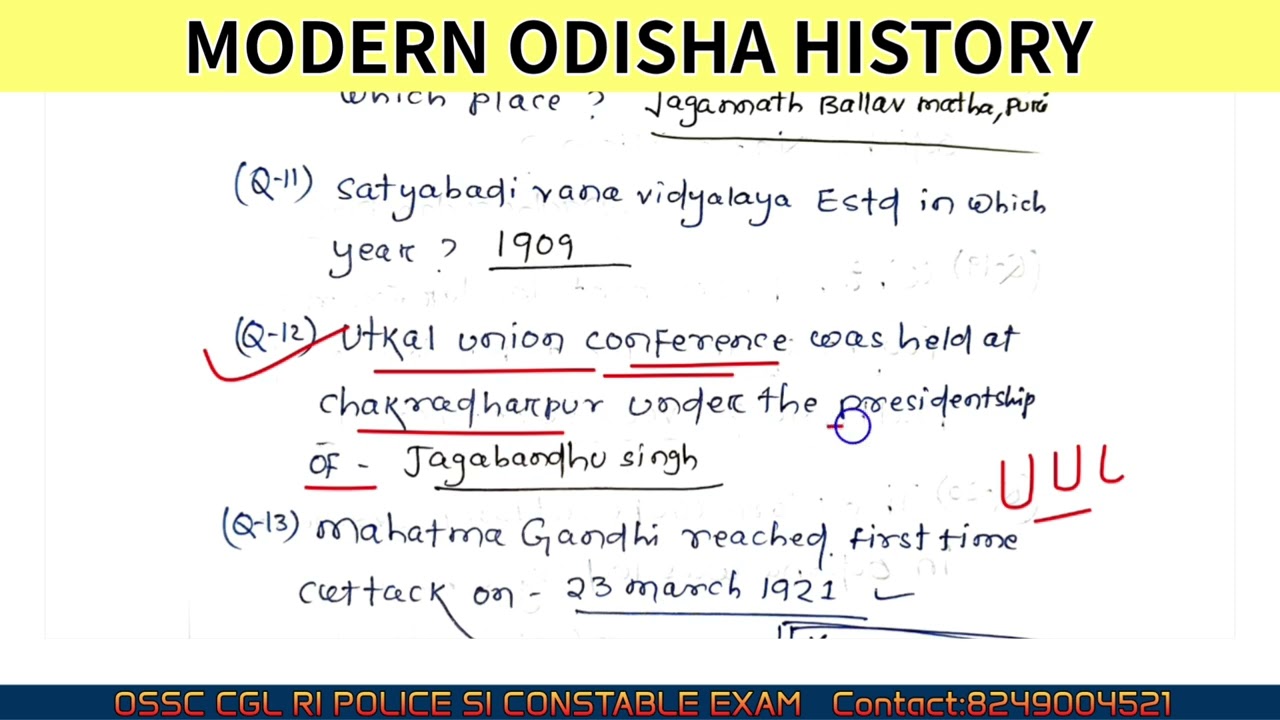 MODERN ODISHA HISTORY
which place ? Jagannath Ballav matha, puri
(Q-11) satyabadi vana vidyalaya Estd in which
year ? 1909
(Q-12) Utkal union conference was held at
chakradharpur under the presidentship
OF - Jagabandhu singh
UUC
(Q-13) mahatma Gandhi reached first time
cuttack on - 23 march 1921
OSSC CGL RI POLICE SI CONSTABLE EXAM Contact:8249004521